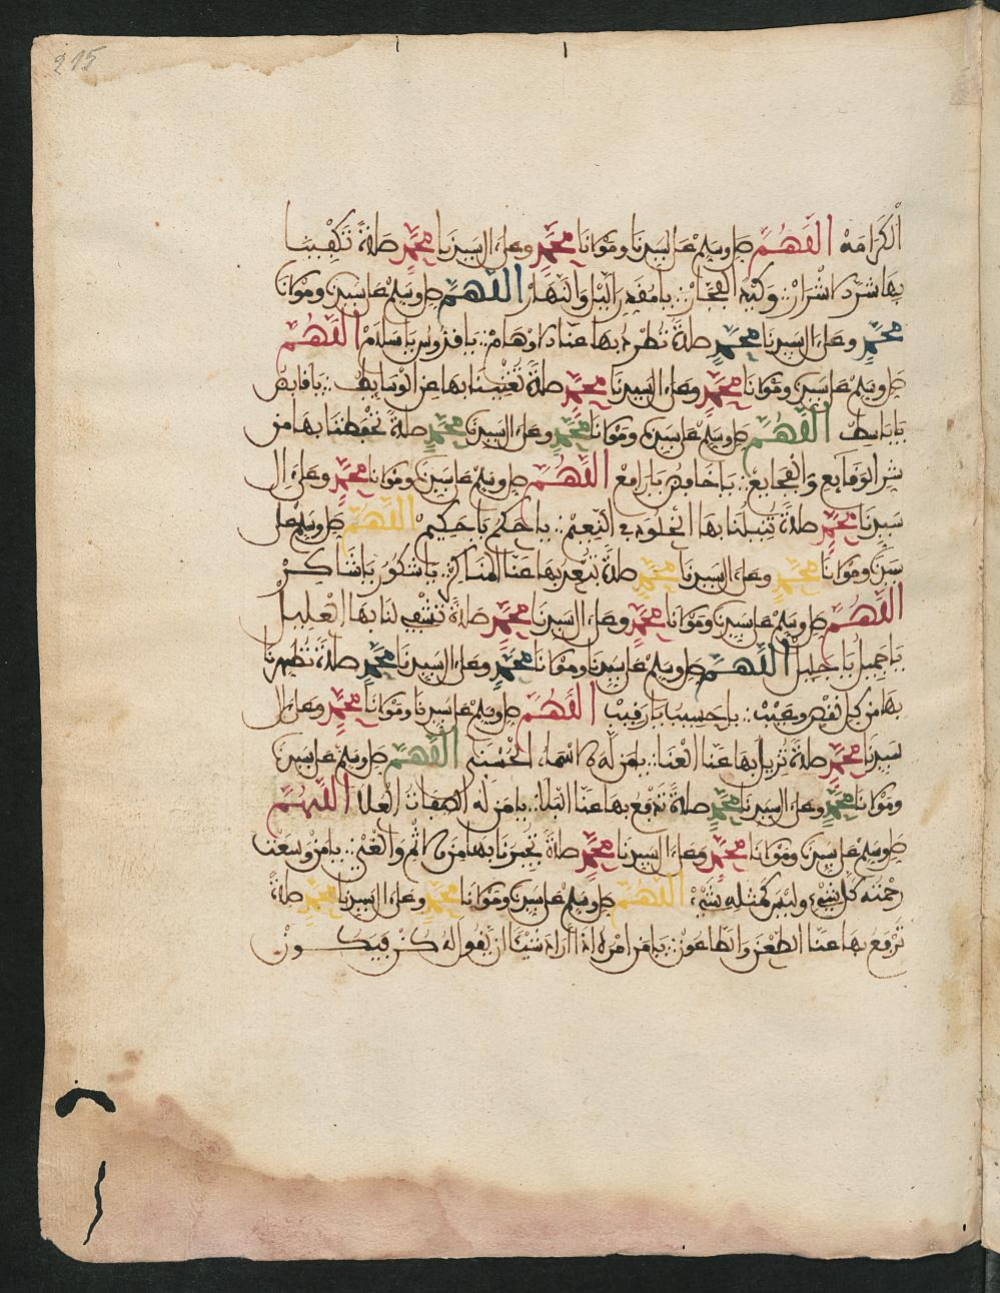 215
الكرامة اللهم صل وسلم على سيدنا ومولانا محمد وعلى ءال سيدنا محمد صلاة تكفينا
بها شر الاشرار وكيد الفجار يا مقدر اليل والنهار اللهم صل وسلم على سيدنا ومولانا
محمد وعلى ءال سيدنا محمد صلاة تطرد بها عنا الاوهام يا قدوس يا سلام اللهم
صل وسلم على سيدنا ومولانا محمد وعلى ءال سيدنا محمد صلاة تغنينا بها عن الوسايط يا قابض
يا باسط اللهم صل وسلم على سيدنا ومولانا محمد وعلى ءال سيدنا محمد صلاة تحفظنا بها من
شر الوقايع والفجايع يا خافض يا رافع اللهم صل وسلم على سيدنا ومولانا محمد وعلى ءال
سيدنا محمد صلاة تنيلنا بها الخلود في النعيم يا حكم يا حكيم اللهم صل وسلم على
سيدنا ومولانا محمد وعلى ءال سيدنا محمد صلاة تبعد بها عنا المناكر يا شكور يا شاكر
اللهم صل وسلم على سيدنا ومولانا محمد وعلى ءال سيدنا محمد صلاة تشفي لنا بها العليل
يا جميل يا جليل اللهم صل وسلم على سيدنا ومولانا محمد وعلى ءال سيدنا محمد صلاة تطهرنا
بها من كل نقص وعيب يا حسيب يا رقيب اللهم صل وسلم على سيدنا ومولانا محمد وعلى ءال
سيدنا محمد صلاة تزيل بها عنا العنا يا من له الاسماء الحسنى اللهم صل وسلم على سيدنا
ومولانا محمد وعلى ءال سيدنا محمد صلاة تدفع بها عنا البلا يا من له الصفات العلا اللهم
صل وسلم على سيدنا ومولانا محمد وعلى ءال سيدنا محمد صلاة تجيرنا بها من الاثم والغي يا من وسعت
رحمته كل شيء وليس كمثله شيء اللهم صل وسلم على سيدنا ومولانا محمد وعلى ءال سيدنا محمد صلاة
ترفع بها عنا الطعن والطاعون يا من امره اذا اراد شيئا ان يقول له كن فيكون